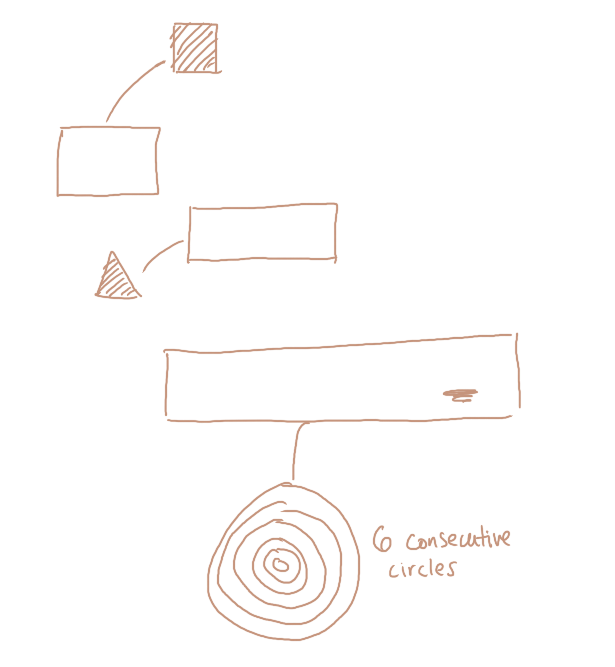 6 consecutive
circles